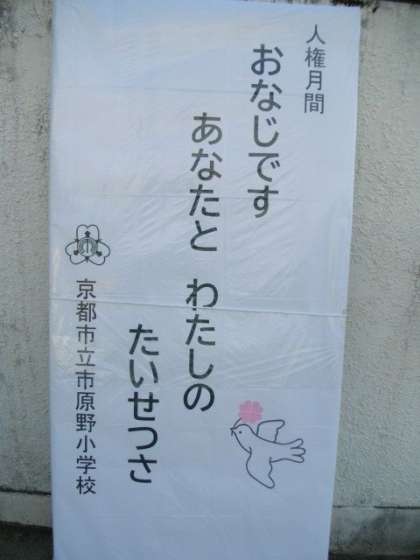 人権月間
おなじです
あなたと わたしの
たいせつさ
京都市立市原野小学校